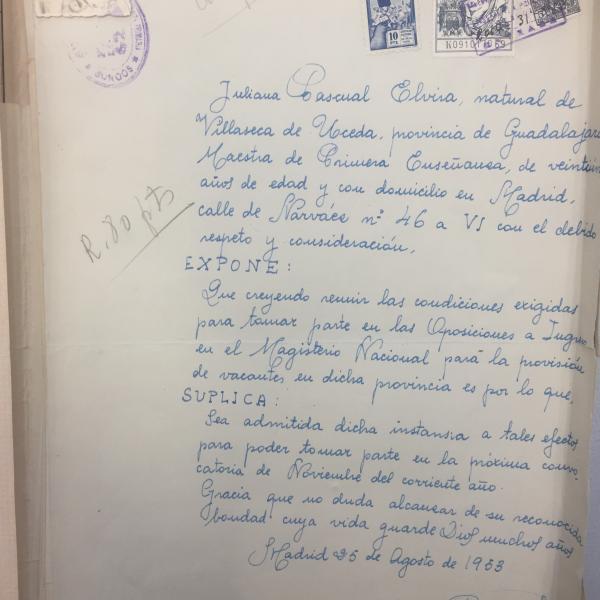 10
N0910 69
31
HUECOS
Juliana Pascual Elvira, natural de
Villaseca de Uceda, provincia de Guadalajara
Maestra de Primera Enseñansa, de veintiun
años de edad y con domicilio en Madrid,
calle de Narváez nº 46 a VI con el debido
respeto y consideración,
R. 80 pts
EXPONE:
Que creyendo reunir las condiciones exigidas
para tomar parte en las Oposiciones a Ingreso
en el Magisterio Nacional para la provisión
de vacantes, en dicha provincia es por lo que,
SUPLICA:
Sea admitida dicha instansia a tales efectos
para poder tomar parte en la próxima convo
catoria de Noviembre del corriente año.
Gracia que no duda alcansar de su reconocida
bondad cuya vida guarde Dios muchos años
Madrid 25 de Agosto de 1953